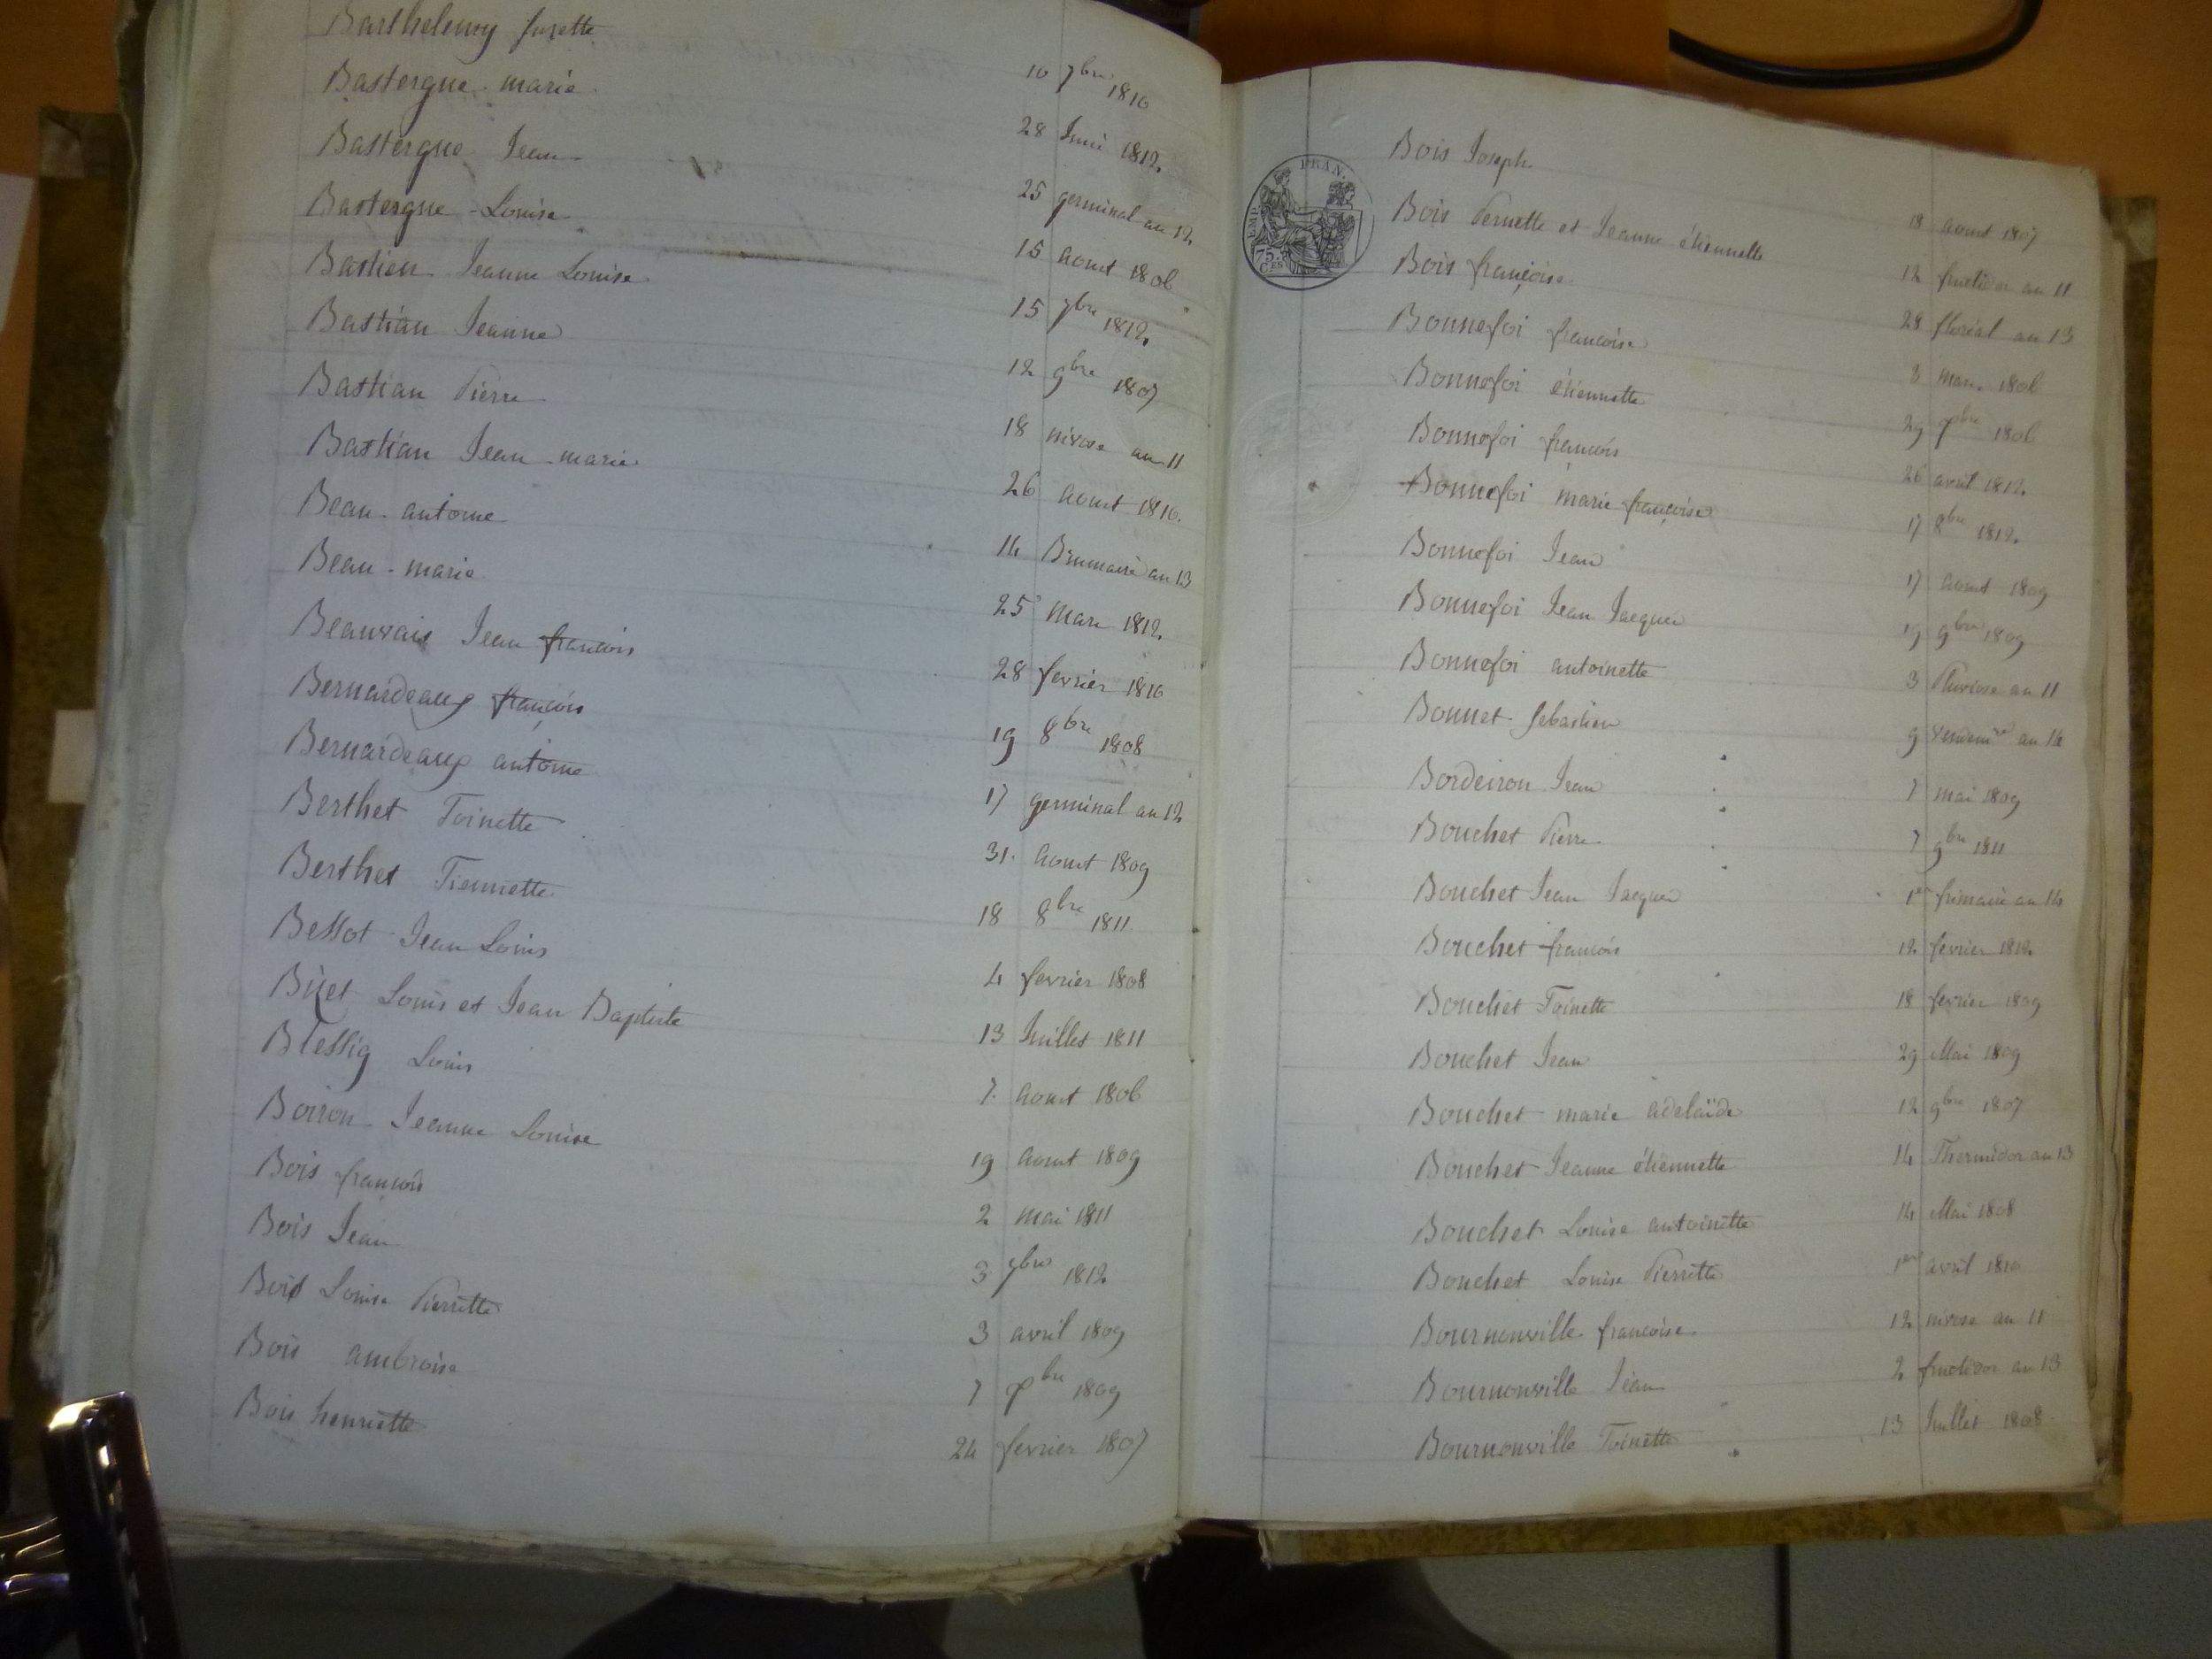 Barthelemy Josette 10 7bre 1810
Bastergue marie 28 Juin 1812
Bastergue Jean 25 germinal an 12
Bastergue Louise 15 aout 1806
Bastien Jeanne Louise 15 7bre 1812
Bastian Jeanne 12 9bre 1807
Bastian Pierre 18 nivose an 11
Bastian Jean marie 26 aout 1810
Beau antoine 14 Brumaire an 13
Beau marie 25 Mars 1812
Beauvais Jean françois 28 fevrier 1810
Bernardeaux françois 19 8bre 1808
Bernardeaux antoine 17 germinal an 12
Berthet Toinette 31 aout 1809
Berthet Tiennette 18 8bre 1811
Bessot Jean Louis 4 fevrier 1808
Bizet Louis et Jean Baptiste 13 Juillet 1811
Blessig Louis 7 aout 1806
Boiron Jeanne Louise 19 aout 1809
Bois françois 2 mai 1811
Bois Jean 3 9bre 1812
Bois Louise Pierrette 3 avril 1809
Bois ambroise 7 Xbre 1809
Bois henriette 24 fevrier 1807
EMP. FRAN.
75 Ces
Bois Joseph 18 aout 1807
Bois Pernette et Jeanne étiennette 12 fructidor an 11
Bois françoise 28 floréal an 13
Bonnefoi françoise 3 mars 1806
Bonnefoi étiennette 29 Xbre 1806
Bonnefoi françois 26 avril 1812
Bonnefoi marie françoise 17 8bre 1812
Bonnefoi Jean 17 aout 1809
Bonnefoi Jean Jacques 19 9bre 1809
Bonnefoi antoinette 3 Pluviose an 11
Bonnet Sebastien 9 vendemre an 14
Bordeiron Jean 7 mai 1809
Bouchet Pierre 7 9bre 1811
Bouchet Jean Jacques 1er frimaire an 14
Bouchet françois 12 fevrier 1812
Bouchet Toinette 18 fevrier 1809
Bouchet Jean 29 Mai 1809
Bouchet marie adelaïde 12 9bre 1807
Bouchet Jeanne étiennette 14 Thermidor an 13
Bouchet Louise antoinette 14 Mai 1808
Bouchet Louise Pierrette 1er avril 1810
Bournonville françoise 12 nivose an 11
Bournonville Jean 2 fructidor an 13
Bournonville Toinette 13 Juillet 1808